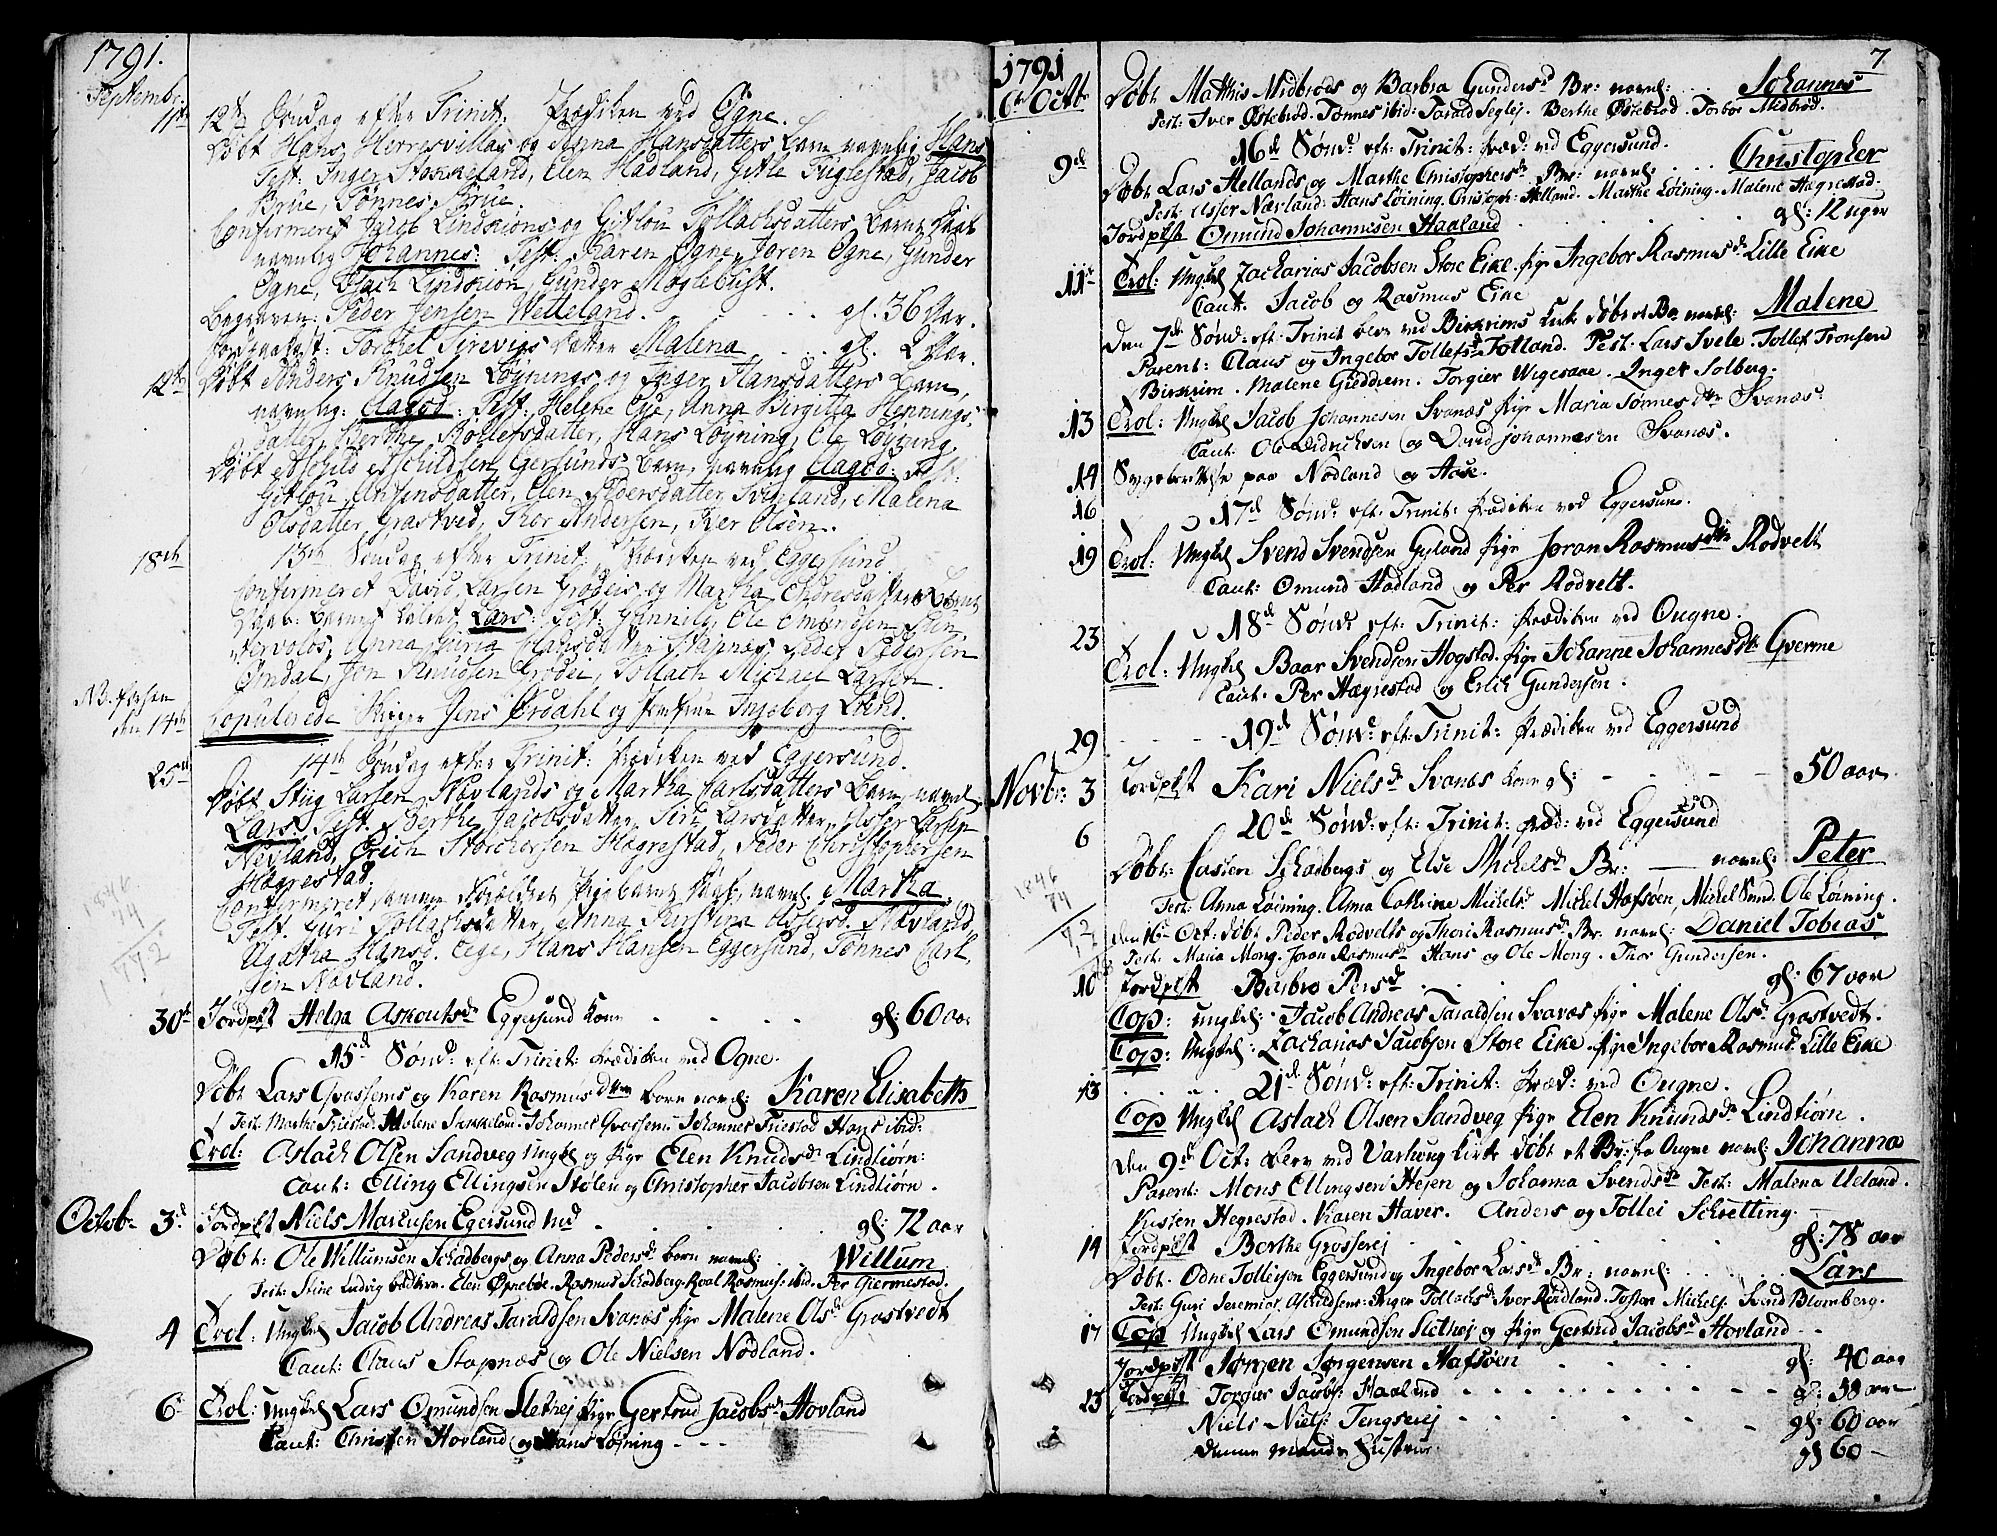 1791.
Septembr.
11te 12te Søndag efter Trinit. Prædiken ved Ogne.
Døbt Hans Herresvillas og Anna Hansdatters Barn navnlig Hans
Test. Inger Stokkeland, Elen Hadland, Gitle Fuglestad, Jacob
Brüe, Tønnes Brüe.
Confirmeret Jacob Lindtiøns og Gitlou Tollachsdatters Barns Daab
navnlig Johannes: Test: Karen Ogne, Joren Ogne, Gunder
Ogne, Isach Lindtiön, Gunder Møglebust.
Begraven: Peder Jensen Wetteland. gl. 36 Aar.
Jordpaakast: Torchel Sirevigs Datter Malena gl. 2 Aar.
12te Døbt Anders Knudsen Løynings og Inger Hansdatters Barn,
navnlig: Aagod: Test: Helene Eye, Anna Birgitta Hennings-
datter, Berthe Tollefsdatter, Hans Løyning, Ole Løyning.
Døbt Aschild Aschildsen Egersunds Barn, navnlig Aagod: Test:
Gitlou Ansensdatter, Elen Pedersdatter Svigland, Malena
Olsdatter Grastved, Thor Andersen, Iver Olsen.
18th 13th Søndag efter Trinit. Prædiken ved Eggersund
Confirmeret David Larsen Grødeis og Martha Endresdatters Barns
Daab. Barnet kaldet Lars: Test: Gunnild, Ole Omundsen Sten
Anna Guria Clausdatter Stapnes, Peder Pedersen
Omdal, Jon Knudsen Grødei, Tollach Michael Larsen.
NB. forhen
den 14th Copulerede Skipper Jens Prdahl og Jomfrue Ingeborg Lund.
25th 14th Søndag efter Trinit: Prædiken ved Eggersund.
Døbt Stiig Larsen Nævlands og Martha Carlsdatters Barn, navnl.
Lars. Test. Berthe Jacobsdatter, Siri Larsdatter, Asser Larsen
Nevland, Erich Storchersen Hægrestad, Peder Christophersen
Hægrestad.
Confirmeret samme Pigebarnet Daab, navnl. Martha.
Test. Guri Tollachsdatter, Anna Kirstina Assersd. Nævland,
Agatha Hansd. Eege, Hans Hansen Eggersund, Tønnes Carl
sen Nævland.
1846
74
1772
30te Jordpest Helga Askoutsdr Eggersund Kone - - - gl: 60 aar
15d Sønd: eft: Trinit: Prædiken ved Ogne.
Døbt Lars Grassems og Karen Rasmusdtter barn navnl: Karen Elisabeth
Test: Marthe Friestad. Malene Johannes Grassem Johannes Friestad Hans ibid:
Trol: Aslach Olsen Sandveg Ungkl og Pige Elen Knudsdr Lindtiørn:
Caut: Elling Ellingsen Stølen og Christopher Jacobsen Lindtiørn.
Octob: 3d Jordpest Niels Markusen Egersund gl: 72 aar
Døbt: Ole Willumsen Schadbergs og Anna Pedersd. barn navnl: Willum
Test: Stine Ludvig Elen Øprebøe. Rasmus Schadberg. Roal Rasmus: ibid. Per Giermestad.
4 Trol: Ungkl Jacob Andreas Taraldsen Svanæs Pige Malene Olsd Grastvedt
Caut: Claus Stapnæs og Ole Nielsen Nødland.
6 Trol: Ungkl Lars Omundsen Slethej Pige Gertrud Jacobsd: Hovland
Caut: Christen Hovland og Hans Løyning - - -
1791 7
6te Octb Døbt Matthis Midbrøds og Barbra Gundersd Br: navnl: .. Johannes
Test: Iver Østebrød. Tønnes ibid: Tarald Seglej. Berthe Østebrød. Torbor Medbrød.
16d Sønd: eft: Trinit: Præd: ved Eggersund.
9d Døbt Lars Hellands og Marthe Christophersd Br: navnl: . . Christopher
Test: Asser Nærland. Hans Løining. Christoph: Helland. Marthe Løining. Malene Hægrestad.
Jordpest Omund Johannesen Haaland . . . gl: 12 uger
11te Trol: Ungkl Zacharias Jacobsen Store Eike. Pige Ingebor Rasmusdr: Lille Eike
Caut: Jacob og Rasmus Eike
Den 7de Sønd: eft: Trinit blev ved Birkrims Kirke døbt et Br navnl: Malene
Parent: Claus og Ingebor Tollefsd Totland. Test: Lars Svele. Tollef Tronsen
Birkrim. Malene Giedrem. Torgier Wigesaae. Inger Solberg.
13 Trol: Ungkl Jacob Johannesen Svanæs Pige Maria Tønnesdtter Svanæs.
Caut: Ole Didrichsen og David Johannesen Svanæs.
14 Sygeberettelse paa Nødland og Aase.
16 17d Sønd: eft: Trinit: Prædiken ved Eggersund.
19 Trol: Ungkl Svend Svendsen Gyland Pige Joran Rasmusdtter Rødvelt
Caut: Omund Hadland og Per Rødvelt.
18d Sønd: eft: Trinit: Prædiken ved Ougne.
23 Trol: Ungkl Baar Svendsen Hogstad. Pige Johanne Johannesdtr Gverme
Caut: Per Hægrestad og Erich Gundersen.
29 - - - 19d Sønd: eft: Trinit: Prædiken ved Eggersund
Novbr: 3 Jordpest Kari Nielsd Svanæs Kone gl: - - - 50 aar
6 20d Sønd: eft: Trinit: Præd: ved Eggersund
Døbt: Casten Schadbergs og Else Michelsd Br: navnl: Peter
Test: Anna Løining. Anna Cathrine Michelsd. Michel Hafsøen, Michel Sund. Ole Løining.
1846
74
1772
den 16te Oct: døbt Peder Rødvelts og Thore Rasmusd: Br. navnl: Daniel Tobias
Test: Maria Mong. Joran Rasmusdr Hans og Ole Mong. Thor Gundersen.
10 Jordpest Barbro Persd . . . gl: 67 aar
Cop: Ungkl. Jacob Andreas Taraldsen Svanæs Pige Malene Olsd Grastvedt.
Cop: Ungkl. Zacharias Jacobsen Store Eike. Pige Ingebor Rasmusd Lille Eike
13 . . . 21d Sønd: eft: Trinit: Præd: ved Ougne.
Cop Ungkl Aslach Olsen Sandveg Pige Elen Knudsdr Lindtiørn.
Den 9d Oct: blev ved Varhoug Kirke døbt et Br: fra Ougne navnl: Johanna
Parent: Mons Ellingsen Hejen og Johanna Svendsdtr Test: Malena Ueland.
Kirsten Hegrestad. Karen Haver. Anders og Tollei Schretting.
14 Jordpest Berthe Grosserej . . . gl: 78 aar
Døbt. Odne Tolleifsen Eggersund og Ingebor Larsd Br: navnl: Lars
Test: Guri Jeremias, Aschildsen: Inger Tollachsd. Iver Rødland. Tosten Michels: Svend Blomberg.
17 Cop Ungkl Lars Omundsen Slethej og Pige Gertrud Jacobsd Hovland
Jordpest Jørgen Jørgensen Hafsøen . . . gl: 40 aar
25 Jordpest Torgius Jacobs: Haaland . . . gl: 58 aar
Niels Niels: Tengserej . . . gl: 60 aar
Denne Mands Hustrue gl 60 -